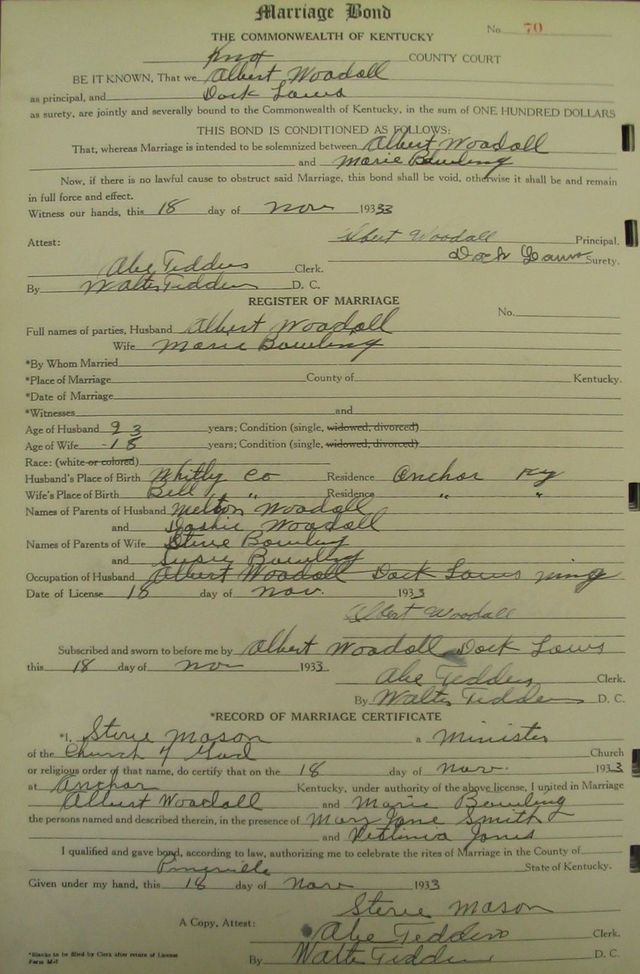 Marriage Bond
No. 70
THE COMMONWEALTH OF KENTUCKY
Knox COUNTY COURT
BE IT KNOWN, That we Albert Woodall
as principal, and Dock Laws
as surety, are jointly and severally bound to the Commonwealth of Kentucky, in the sum of ONE HUNDRED DOLLARS
THIS BOND IS CONDITIONED AS FOLLOWS:
That, whereas Marriage is intended to be solemnized between Albert Woodall
and Marie Bowling
Now, if there is no lawful cause to obstruct said Marriage, this bond shall be void, otherwise it shall be and remain
in full force and effect.
Witness our hands, this 18 day of Nov 193 33
Albert Woodall Principal.
Attest: Dock Laws Surety.
Abe Tedders Clerk.
By Walter Tedders D. C.
REGISTER OF MARRIAGE
No.
Full names of parties, Husband Albert Woodall
Wife Marie Bowling
*By Whom Married
*Place of Marriage County of Kentucky.
*Date of Marriage
*Witnesses and
Age of Husband 23 years; Condition (single, widowed, divorced)
Age of Wife 18 years; Condition (single, widowed, divorced)
Race: (white or colored)
Husband's Place of Birth Whitly Co Residence Anchor Ky
Wife's Place of Birth Bell " Residence " "
Names of Parents of Husband Melton Woodall
and Woodall
Names of Parents of Wife Steve Bowling
and Susie Bowling
Occupation of Husband Albert Woodall Dock Laws ming
Date of License 18 day of Nov. 193 3
Albert Woodall
Subscribed and sworn to before me by Albert Woodall Dock Laws
this 18 day of Nov 193 3
Abe Tedders Clerk.
By Walter Tedders D. C.
*RECORD OF MARRIAGE CERTIFICATE
*I, Steve Mason a Minister
of the Church of God Church
or religious order of that name, do certify that on the 18 day of Nov. 193 3
at Anchor Kentucky, under authority of the above license, I united in Marriage
Albert Woodall and Marie Bowling
the persons named and described therein, in the presence of Mary Jane Smith
and Jones
I qualified and gave bond, according to law, authorizing me to celebrate the rites of Marriage in the County of
Pineville State of Kentucky.
Given under my hand, this 18 day of Nov 193 3
Steve Mason
A Copy, Attest: Abe Tedders Clerk.
By Walter Tedders D. C.
*Blanks to be filled by Clerk after return of License
Form M-7